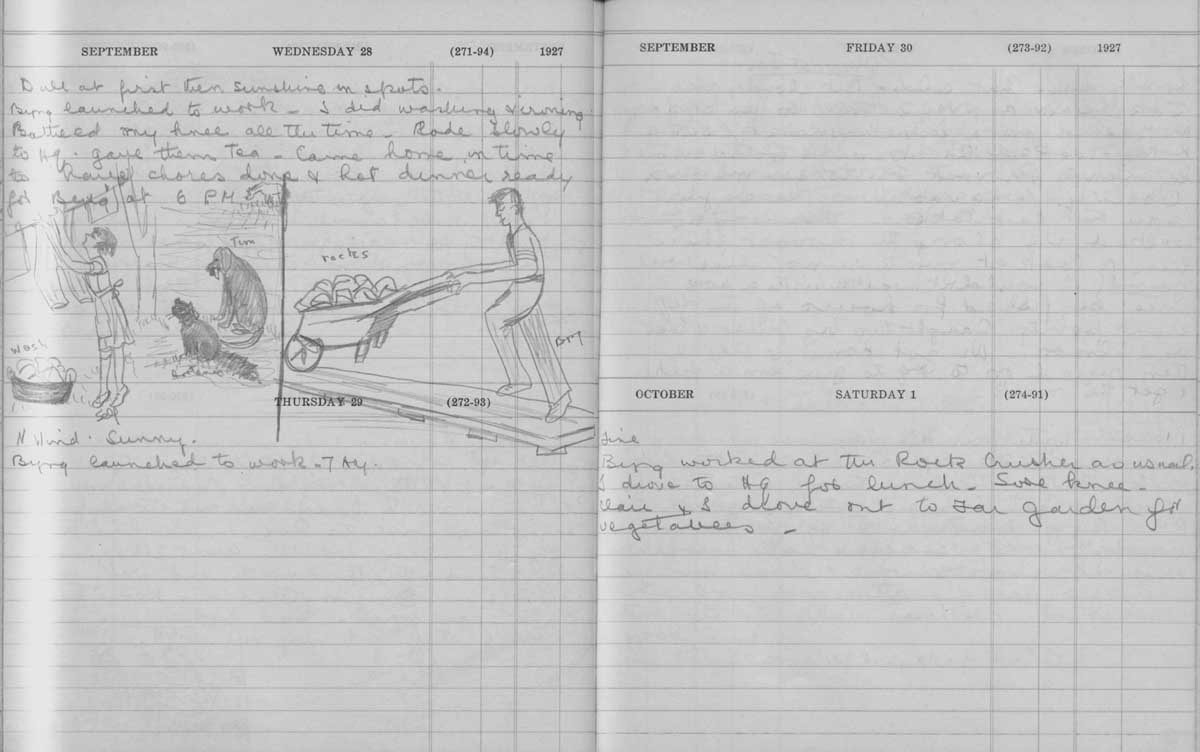 SEPTEMBER WEDNESDAY 28 (271-94) 1927
Dull at first then sunshine in spots.
Byng launched to work - I did washing & ironing.
Bathed my knee all the time - Rode slowly
to HQ. gave them Tea - Came home in time
to have chores done & hot dinner ready
for Byng at 6 PM
Tim
rocks
wash
Byng
Self
THURSDAY 29 (272-93)
N Wind. Sunny.
Byng launched to work - 7
SEPTEMBER FRIDAY 30 (273-92) 1927
OCTOBER SATURDAY 1 (274-91)
Fine
Byng worked at the Rock Crusher as usual.
I drove to HQ for lunch - Sore knee -
& I drove out to Far Garden for
vegetables -